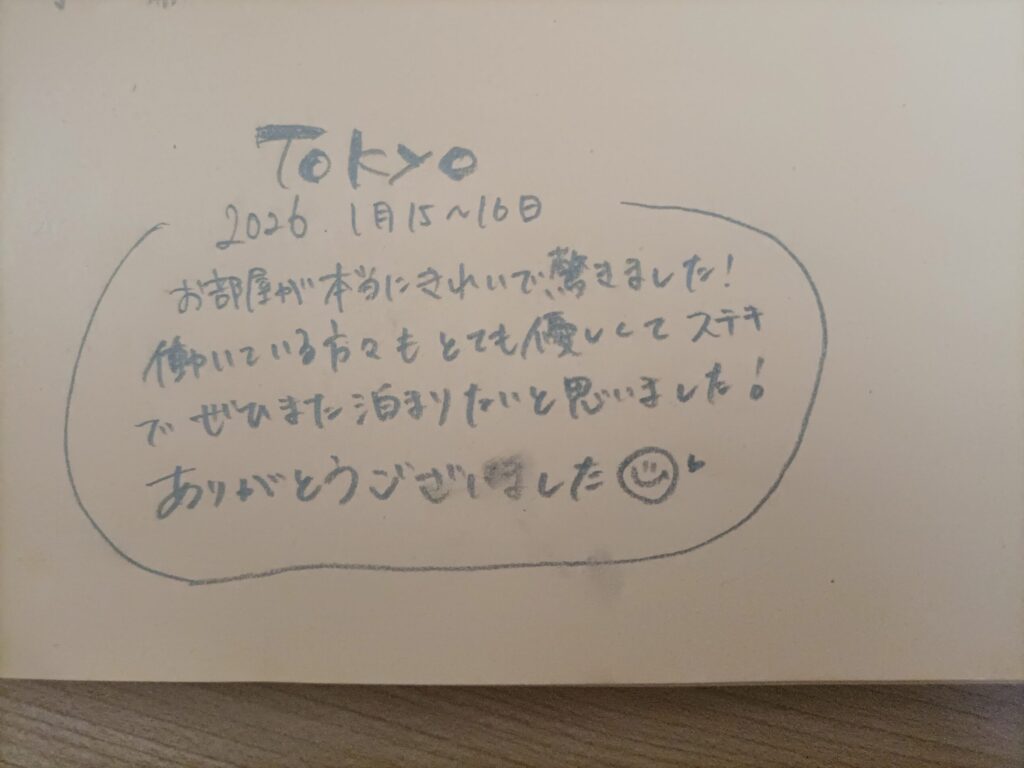 Tokyo
2026. 1月15～16日
お部屋が本当にきれいで、驚きました!
働いている方々もとても優しくてステキ
でぜひまた泊まりたいと思いました!
ありがとうございました